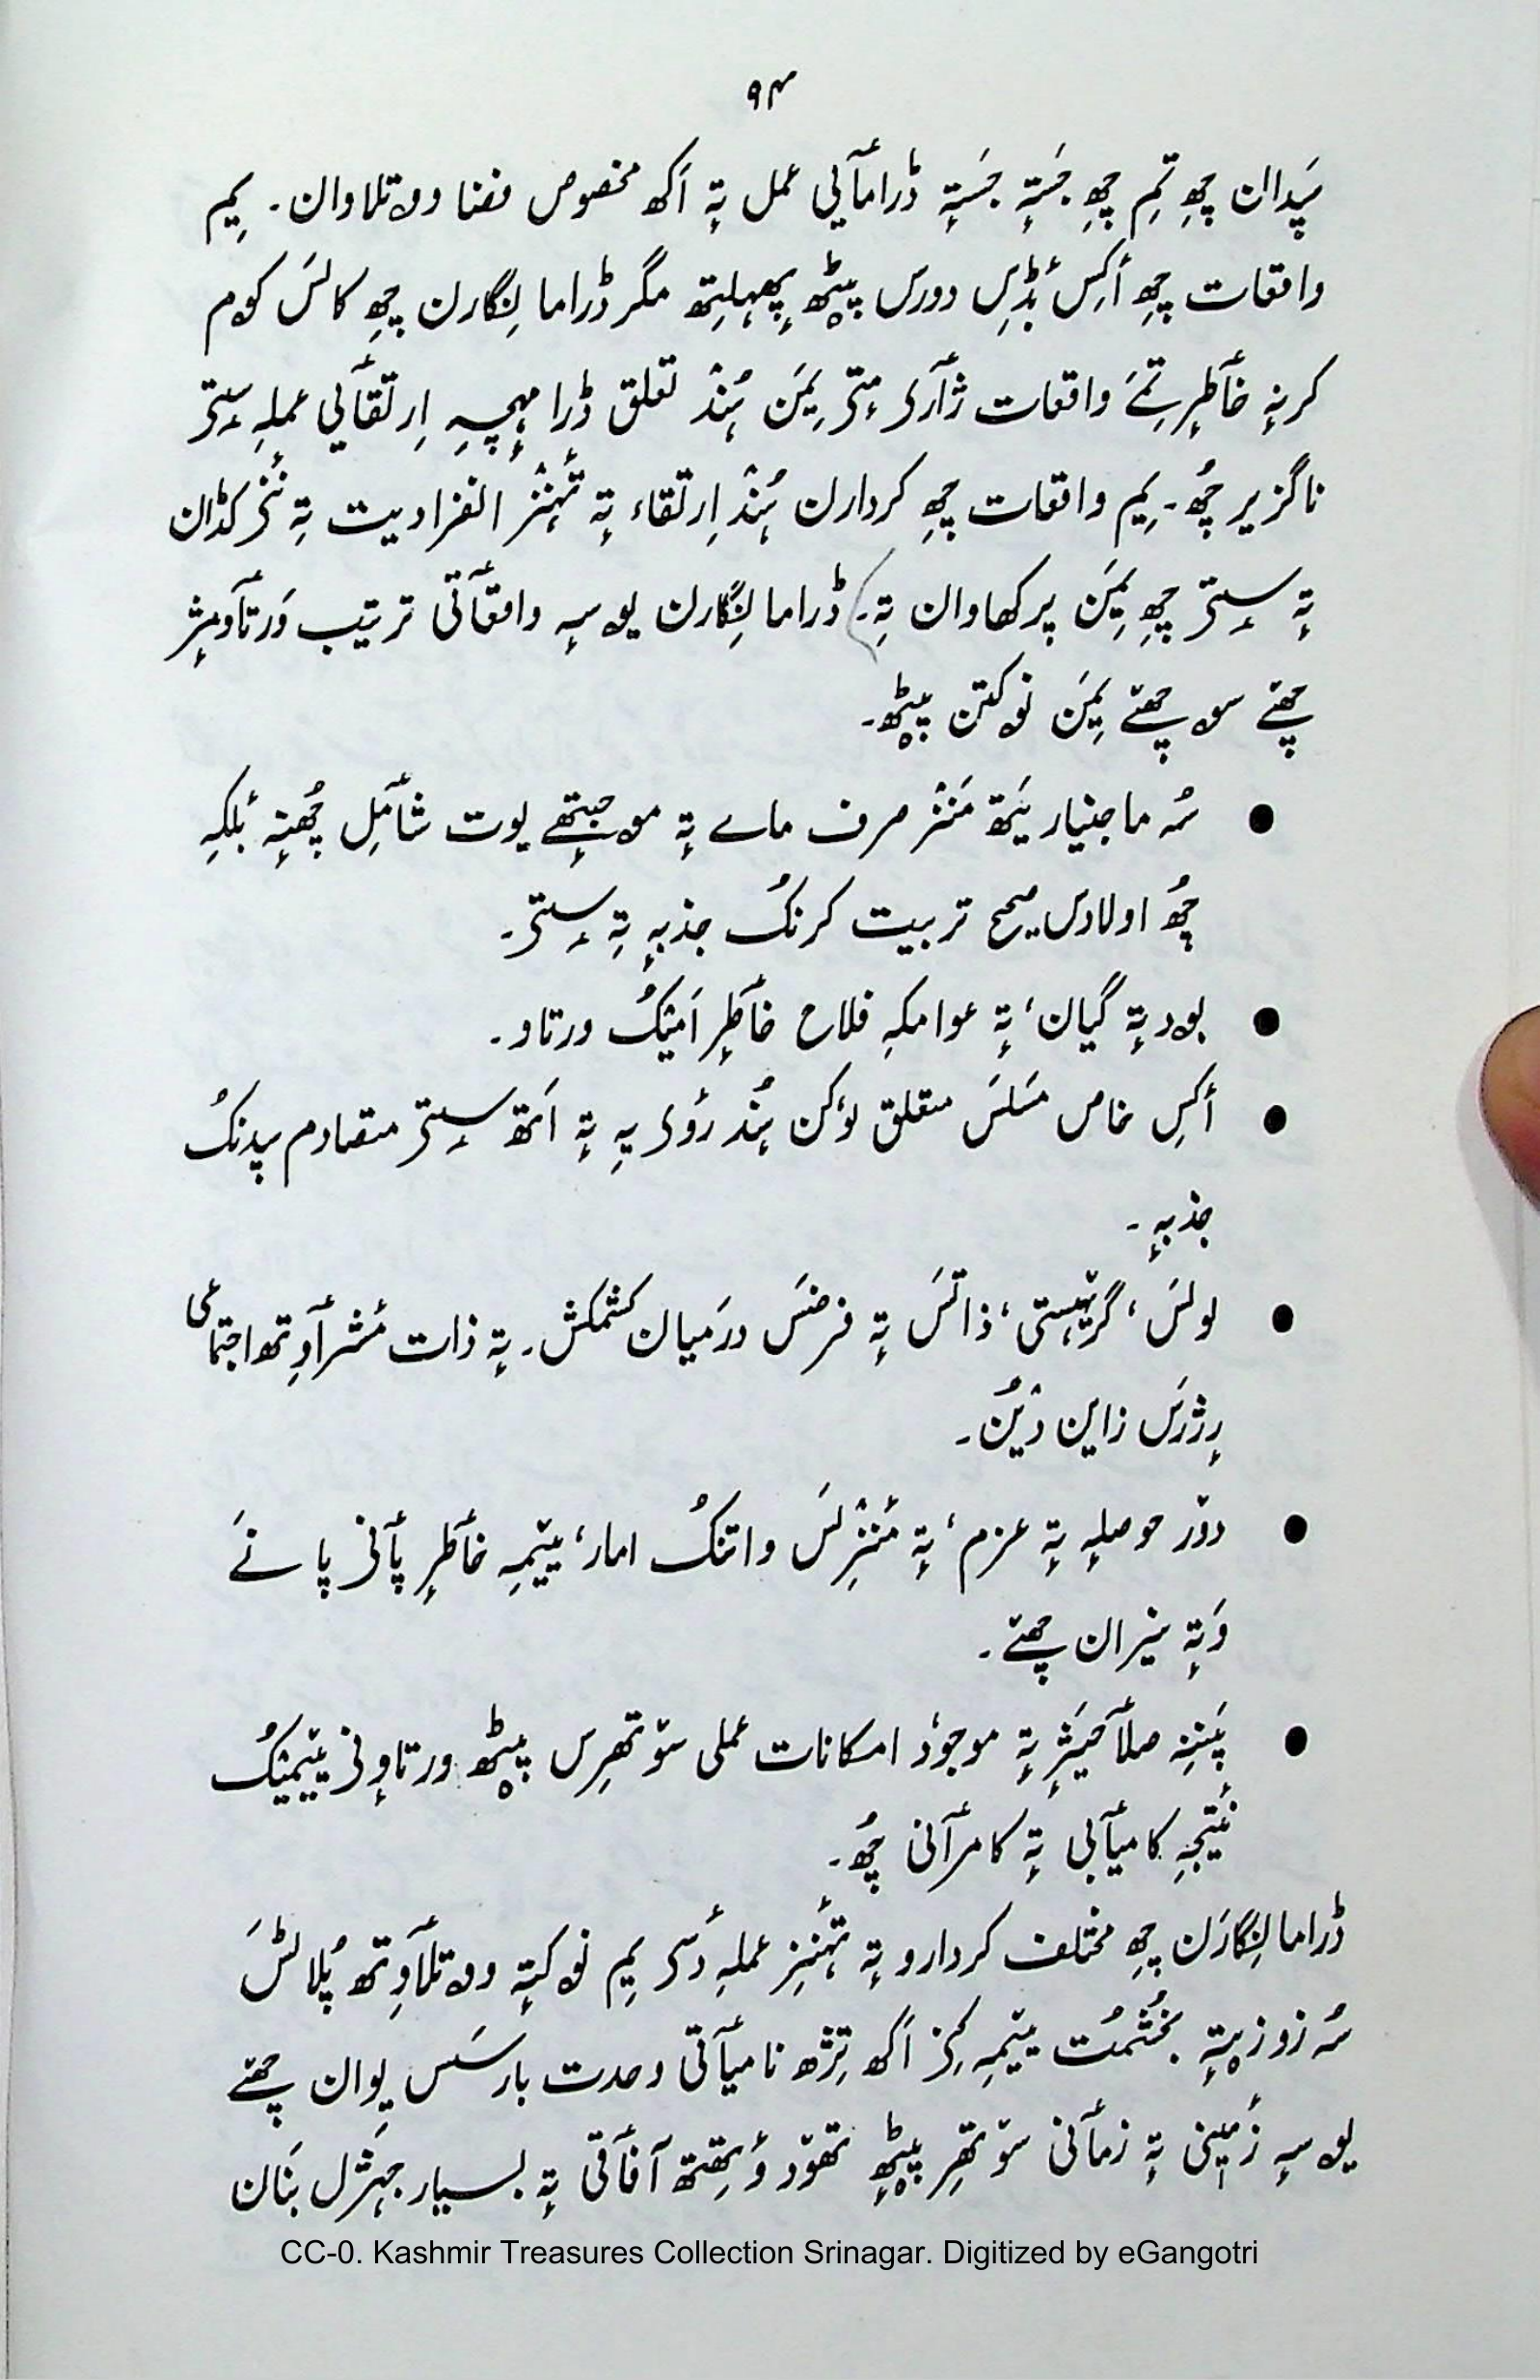 ۹۴
سَپدان چھِ تِم چھِ جَستہٕ جَستہٕ ڈرامٲیی عمل تہٕ اَکھ مخصوص فضا ووتلاوان۔ یِم
واقعات چھِ أکِس بٔڈِس دورس پیٚٹھ پھہلِتھ مگر ڈراما نِگارن چھِ کالَس کوم
کرنہٕ خٲطرٕ تِمَے واقعات ژٲرۍ مٕتۍ یِمَن ہُنٛد تعلق ڈرامہٕچہِ اِرتقٲیی عملہِ سٟتۍ
ناگزیر چھُ۔ یِم واقعات چھِ کردارن ہُنٛد اِرتقاء تہٕ تٔہنٛز انفرادیت تہِ نٔنۍ کڈان
تہٕ سٟتۍ چھِ یِمَن پرکھاوان تہِ۔ ڈراما نِگارن یوسہٕ واقعٲتی ترتیب وَرتٲومٕژ
چھےٚ سو چھےٚ یِمَن نوکتن پیٚٹھ۔
● سُہ ماجنیار یَتھ مَنٛز صرف مایے تہٕ موحبتٕھے یوت شٲمِل چھُنہٕ بٔلکہِ
چھُ اولادس صحیح تربیت کرنُک جذبہٕ تہِ سٟتۍ۔
● بود تہٕ گیان، تہٕ عوامکہِ فلاح خٲطرٕ اَمیُک ورتاو۔
● أکِس خاص مَسلَس متعلق لوٗکن ہُنٛد رٔویہِ تہٕ اَتھ سٟتۍ متصادم سپدنُک
جذبہٕ۔
● لولَس، گرٛہستی، ذاتَس تہٕ فرضَس درَمیان کشمکش۔ تہٕ ذات مٔشرٲوِتھ اجتمٲعی
رٕژرَس زاین دیُن۔
● دوٚر حوصلہٕ تہٕ عزم، تہٕ مَنٛزِلَس واتنُک امار، ییٚمہِ خٲطرٕ پٲنۍ پانَے
وَتہٕ نیران چھےٚ۔
● پَننہِ صلٲحیَژٕ تہٕ موجوٗد امکانات عملی سوٚتھرِس پیٚٹھ ورتاوٕنۍ ییٚمیُک
نٔتیجہِ کامیٲبی تہٕ کامرٲنی چھُ۔
ڈراما نِگارَن چھِ مختلف کردارو تہٕ تٔہنٛزِ عملہِ دٔسۍ یِم نوکتہٕ ووتلٲوِتھ پلاٹَس
سُہ زوزیتہٕ بخشمُت ییٚمہِ کِنۍ اَکھ تِژھ نامیٲتی وحدت بارسَس یِوان چھےٚ
یوسہٕ زٔمیٖنی تہٕ زمٲنی سوٚتھرِ پیٚٹھٕ تھوٚد وٕتھِتھ آفٲقی تہٕ بسیار جہژل بَنان
CC-0. Kashmir Treasures Collection Srinagar. Digitized by eGangotri